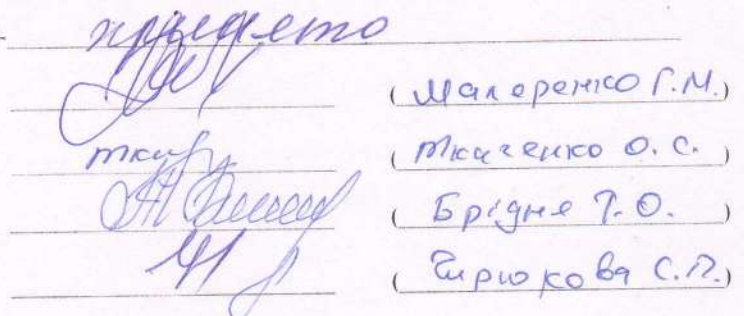 прийнято
(Макаренко Г.М.)
Ткач (Ткаченко О.С.)
(Брідня Т.О.)
(Чирюкова С.П.)